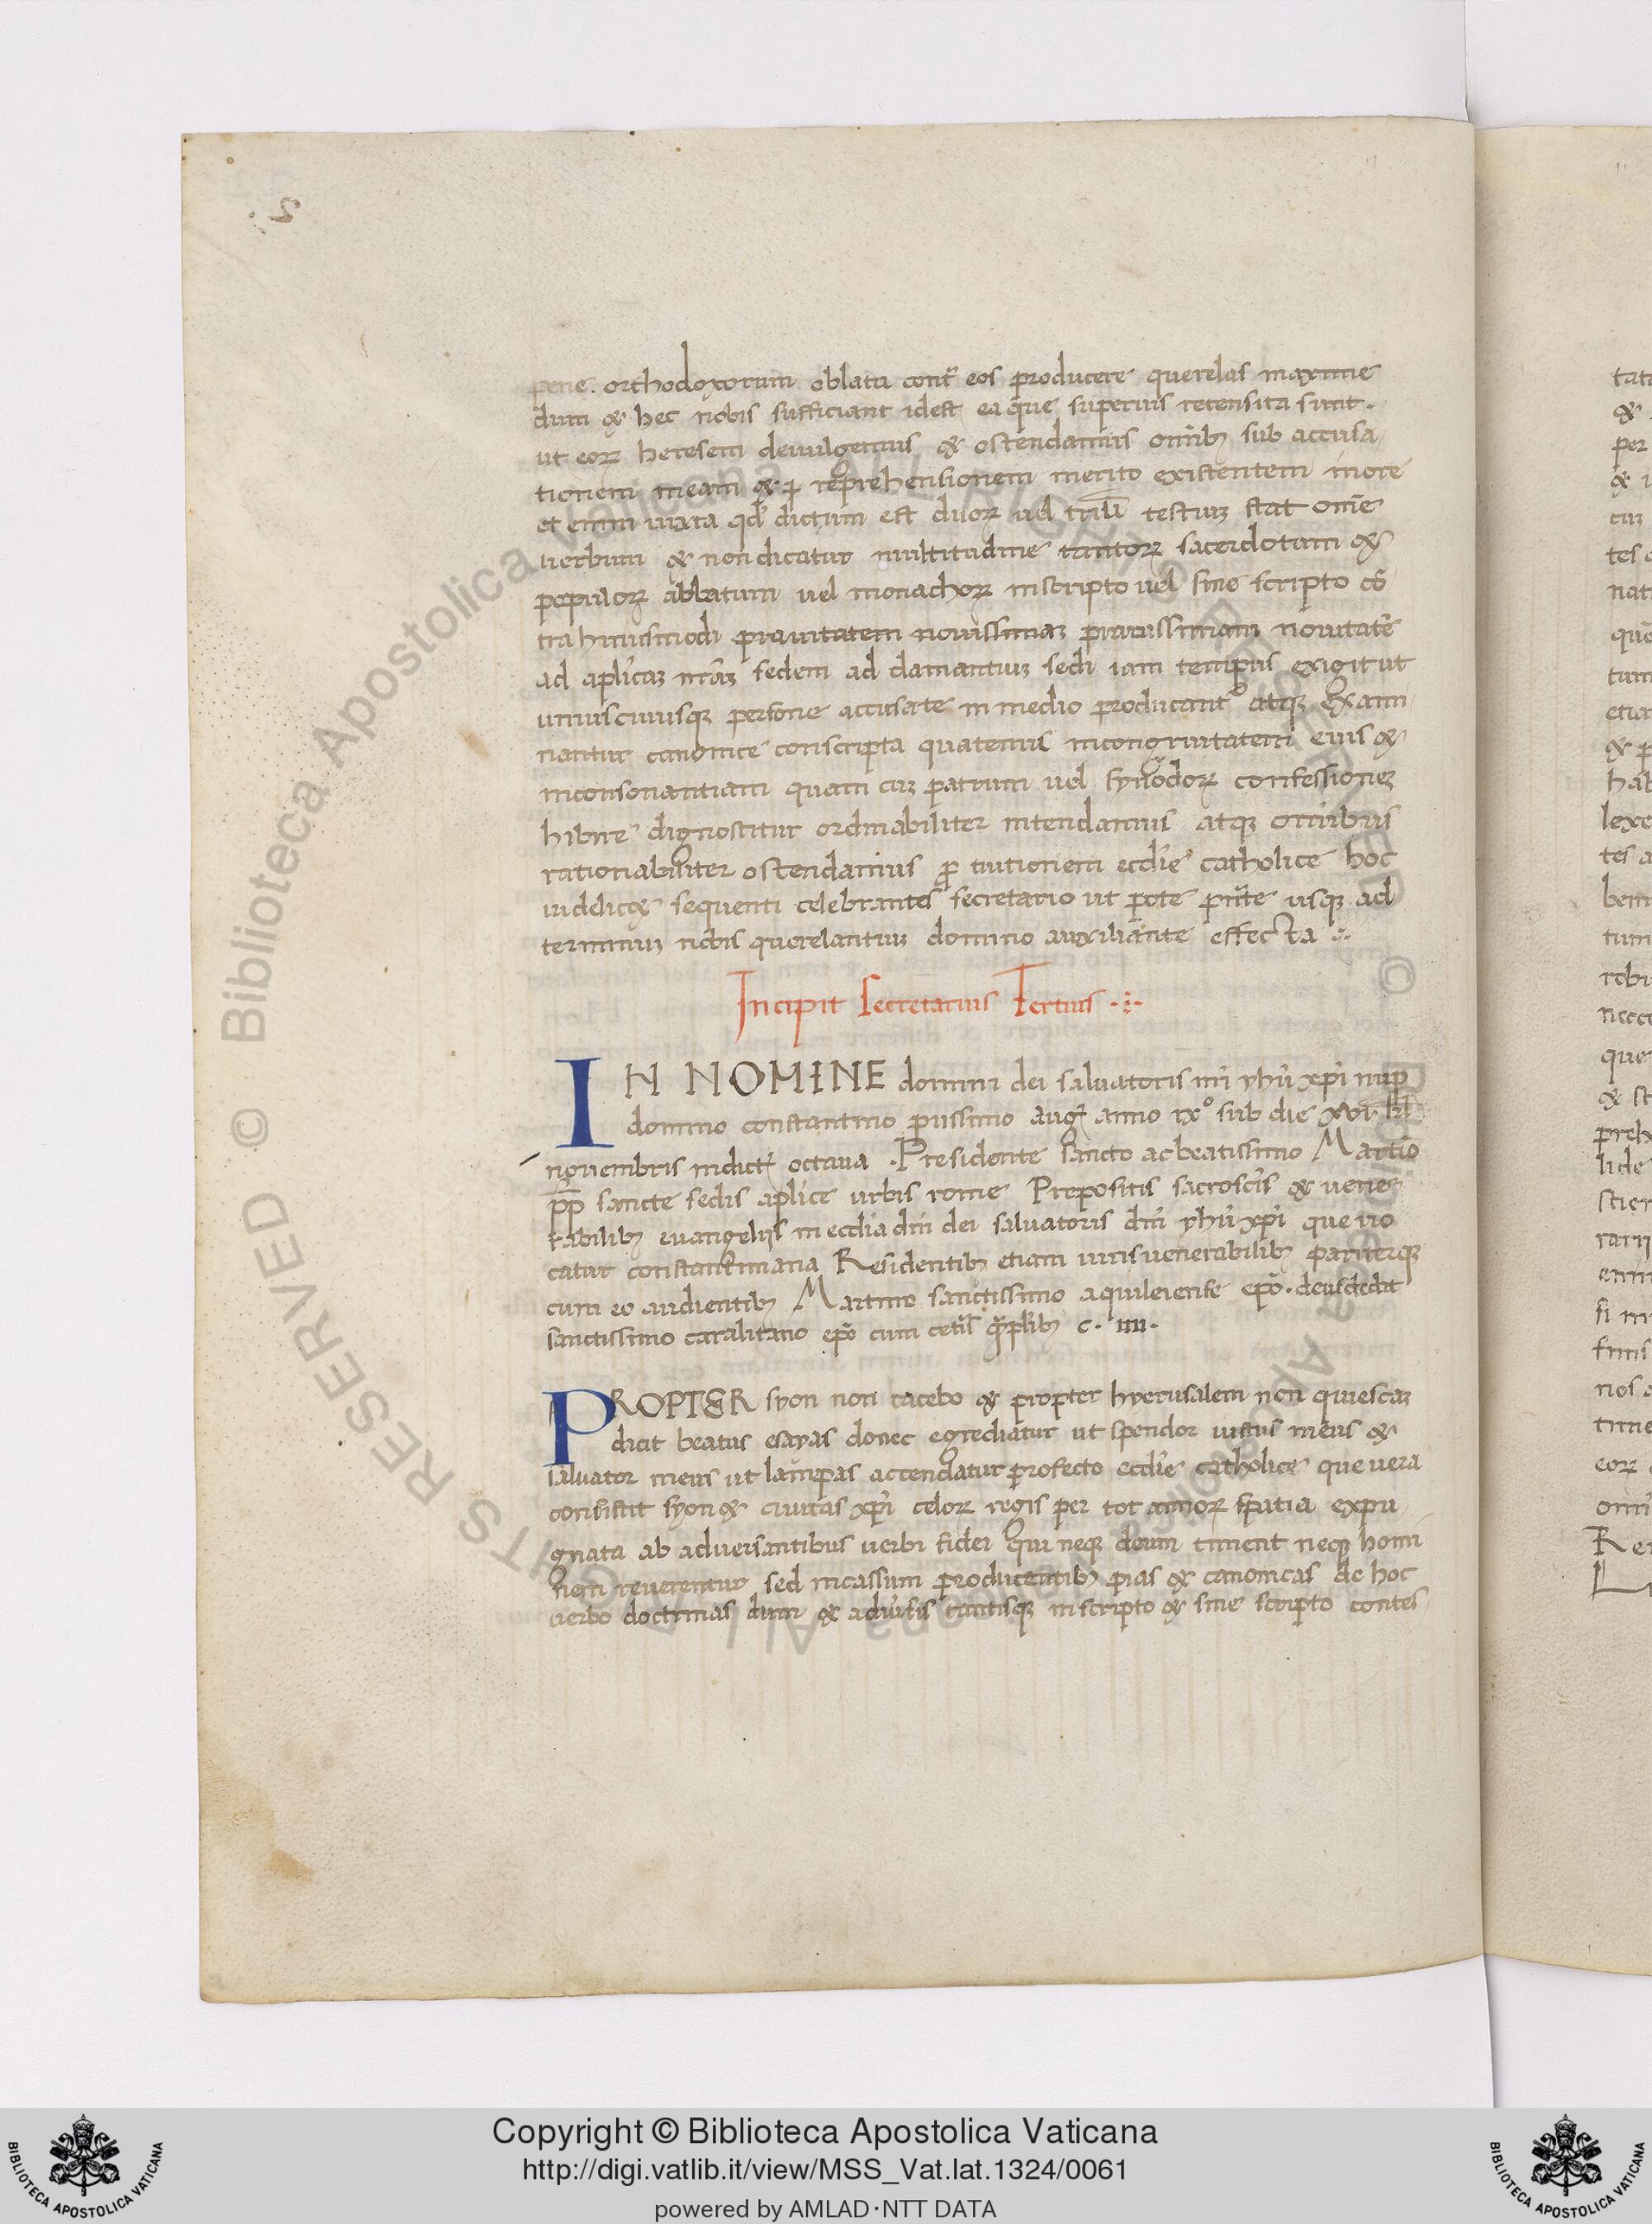 pene. orthodoxorum oblata contr̃ eos producere querelas maxime
dum & hec nobis sufficiant idest ea que superius recensita sunt.
ut eorꝝ heresem deuulgemus & ostendamus omĩbꝫ sub accusa
tionem meam & ꝑ reprehensionem merito existentem more
et enim iuxta qđ dictum est duorꝝ uel triũ testiuꝫ stat om̃e
uerbum & non dicatur multitudine tantorꝝ sacerdotum &
populorꝝ abbatum uel monachorꝝ inscripto uel sine scripto cõ
tra huiusmodi prauitatem nouissimaꝫ prauissimam nouitatẽ
ad aplicaꝫ nr̃aꝫ sedem ad damantiuꝫ sedi iam tempus exigit ut
uniuscuiusqꝫ persone accusate in medio producant᷑ atqꝫ exami
nantur canonice conscripta quatenus incongruitatem eius &
inconsonantiam quam cuꝫ patrum uel synodorꝝ confessioneꝫ
hibire dignoscitur ordinabiliter intendamus atqꝫ omnibus
rationabiliter ostendamus ꝓ tuitionem ecclie catholice hoc
uidelic& sequenti celebrantes secretario ut ꝑote prñte usqꝫ ad
terminuꝫ nobis querelantiuꝫ domino auxiliante effecta
Incipit Secretarius Tertius
IN NOMINE domini dei saluatoris nr̃i yhũ xpi imꝑ
domino constantino piissimo aug̃ anno ix° sub die xvi. kl̃
nouembris indict̃ octaua. Presidente sancto ac beatissimo Martĩo
pp̃ sancte sedis aplice urbis rome Prepositis sacroscĩs & vene
rabilibꝫ euangelijs in ecclia dñi dei saluatoris dñi yhũ xpi que uo
catur constantiniana Residentibꝫ etiam uiris uenerabilibꝫ pariterqꝫ
cum eo audientibꝫ Martino sanctissimo aquileiense epõ. deusdedit
sanctissimo caralitano epõ cum cetĩs c. iiii.
PROPTER syon non tacebo & propter hyerusalem non quiescaꝫ
dicit beatus esayas donec egrediatur ut spendor iustus meus &
saluator meus ut lampas accendatur profecto ecclie catholice que uera
consistit syon & ciuitas xpi celorꝝ regis per tot annorꝝ spatia expu
gnata ab aduersantibus uerbi fidei qui neqꝫ deum timent neqꝫ homi
nem reuerentur sed incassum producentibꝫ pias & canonicas de hoc
uerbo doctrinas dum & aduĩsis tantisqꝫ inscripto & sine scripto contes
Copyright © Biblioteca Apostolica Vaticana
http://digi.vatlib.it/view/MSS_Vat.lat.1324/0061
powered by AMLAD·NTT DATA
BIBLIOTECA APOSTOLICA VATICANA
BIBLIOTECA APOSTOLICA VATICANA